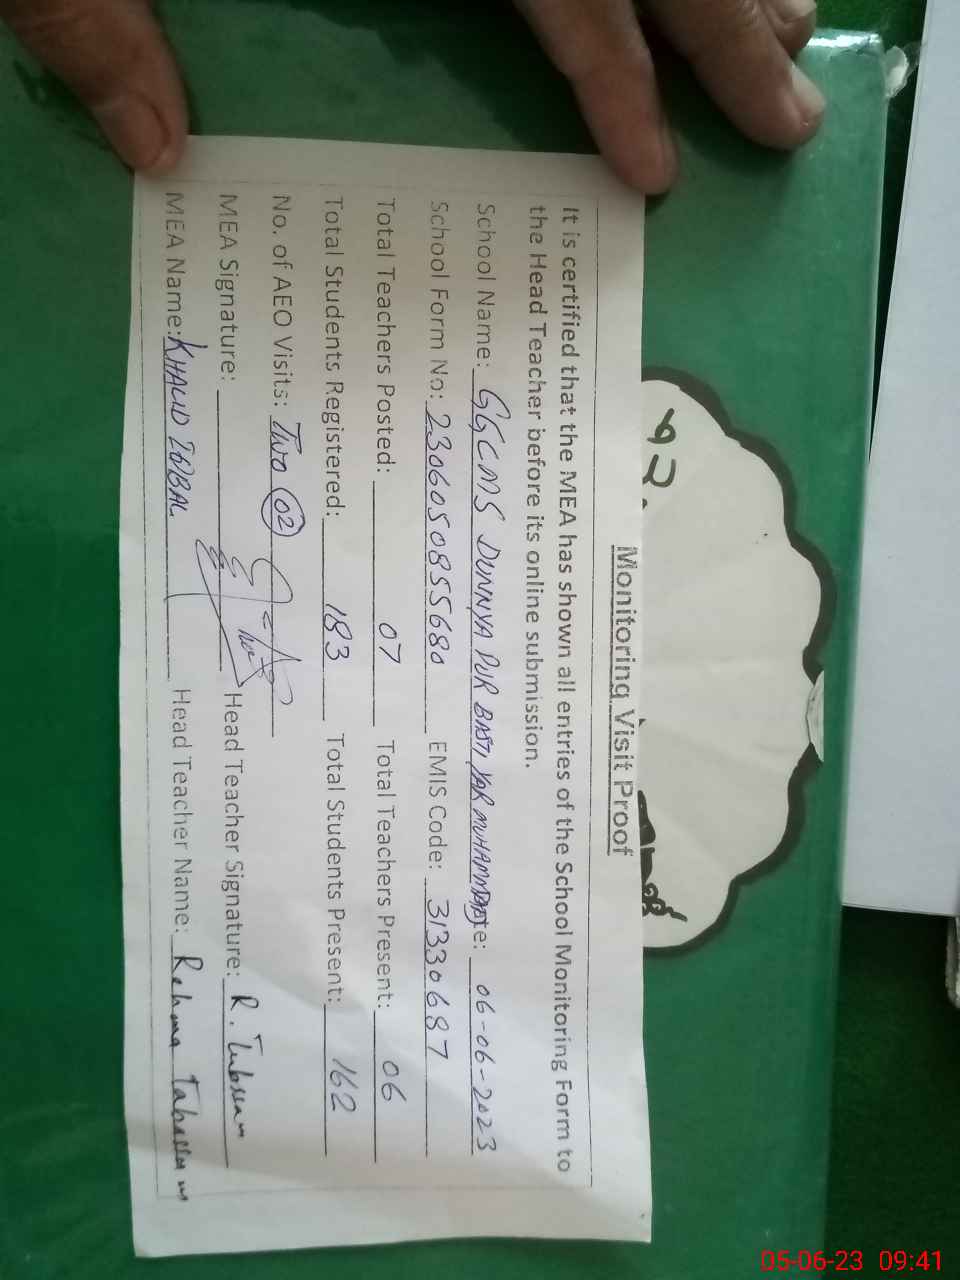 Monitoring Visit Proof
It is certified that the MEA has shown all entries of the School Monitoring Form to
the Head Teacher before its online submission.
School Name: GGCMS DUNNYA PUR BASTI YAR MUHAMMAD Date: 06-06-2023
School Form No: 23060508555680 EMIS Code: 31330687
Total Teachers Posted: 07 Total Teachers Present: 06
Total Students Registered: 183 Total Students Present: 162
No. of AEO Visits: Two 02
MEA Signature: Head Teacher Signature: R. Tubseam
MEA Name: KHALID IQBAL Head Teacher Name: Rehma
05-06-23 09:41